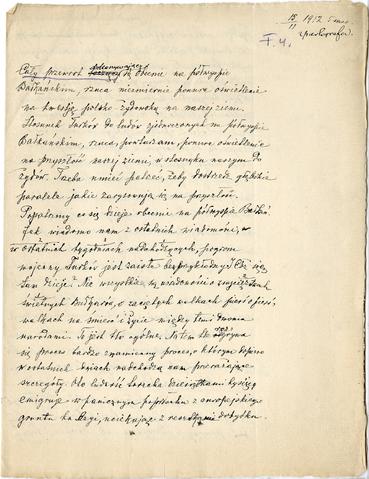 15/11 1912
F.4.
dokonywający
Cały przewrot się obecnie na półwyspie
Bałkańskim, rzuca niezmiernie ponure oświetlenie
na kwestję polsko-żydowską na naszej ziemi.
Stosunek Turków do ludów zjednoczonych na półwyspie
Bałkańskim, rzuca, powtarzam, ponure oświetlenie
na przyszłość naszej ziemi, w stosunku naszym do
żydów. Trzeba umieć patrzeć, żeby dostrzedz głębokie
paralele jakie zarysowują się na przyszłość.
Popatrzmy co się dzieje obecnie na półwyspie Bałkań.
Jak wiadomo nam z ostatnich wiadomości, w
w ostatnich tygodniach nadchodzących, pogrom
wojenny Turków jest zaiste bezprzykładny! Cóż się
tam dzieje? Nie wszystkie są wiadomości o zwycięstwach
świetnych Bułgarów, o zaciętych walkach pierś o pierś,
walkach na śmierć i życie między temi dwoma
narodami. To jest tło ogólne. Na tem tle odgrywa
się proces bardzo znamienny proces, o którym dopiero
w ostatnich dniach nadchodzą nam przerażające
szczegóły. Oto ludność turecka dziesiątkami tysięcy
emigruje w panicznym popłochu z europejskiego
gruntu do Azji, uciekając z resztkami dobytku.